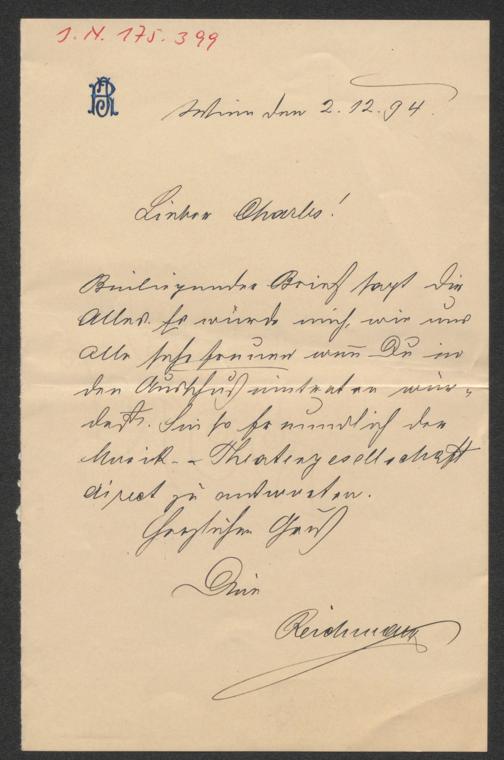 J.N. 175.399
Wien den 2.12.94.
Lieber Charles!
Beiliegender Brief sagt Dir
Alles. Es würde mich, wie uns
Alle sehr freuen wenn Du in
den Ausschuß eintreten wür-
dest. Sei so freundlich der
Musik- u Theatergesellschaft
direct zu antworten.
Herzlichen Gruß
Dein
Reichmann